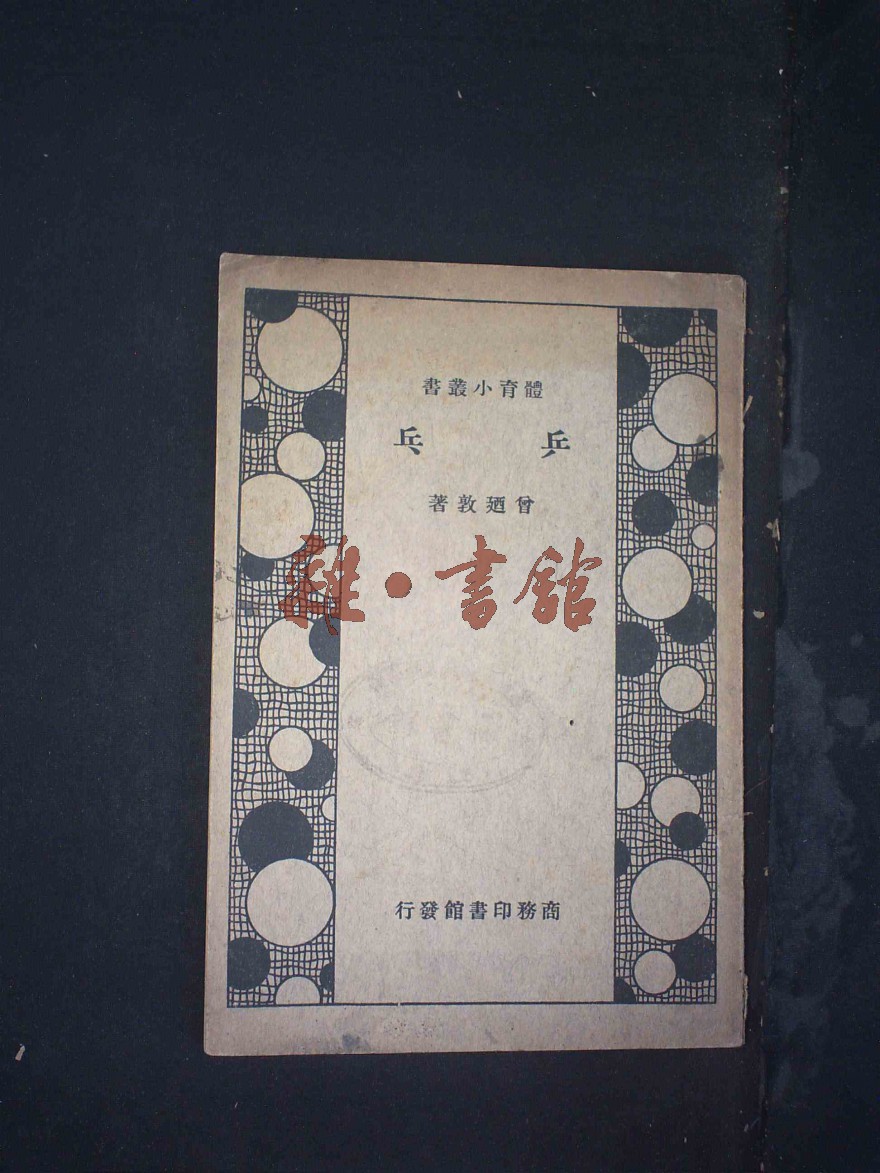 體育小叢書
乒乓
曾廼敦著
雜·書館
商務印書館發行